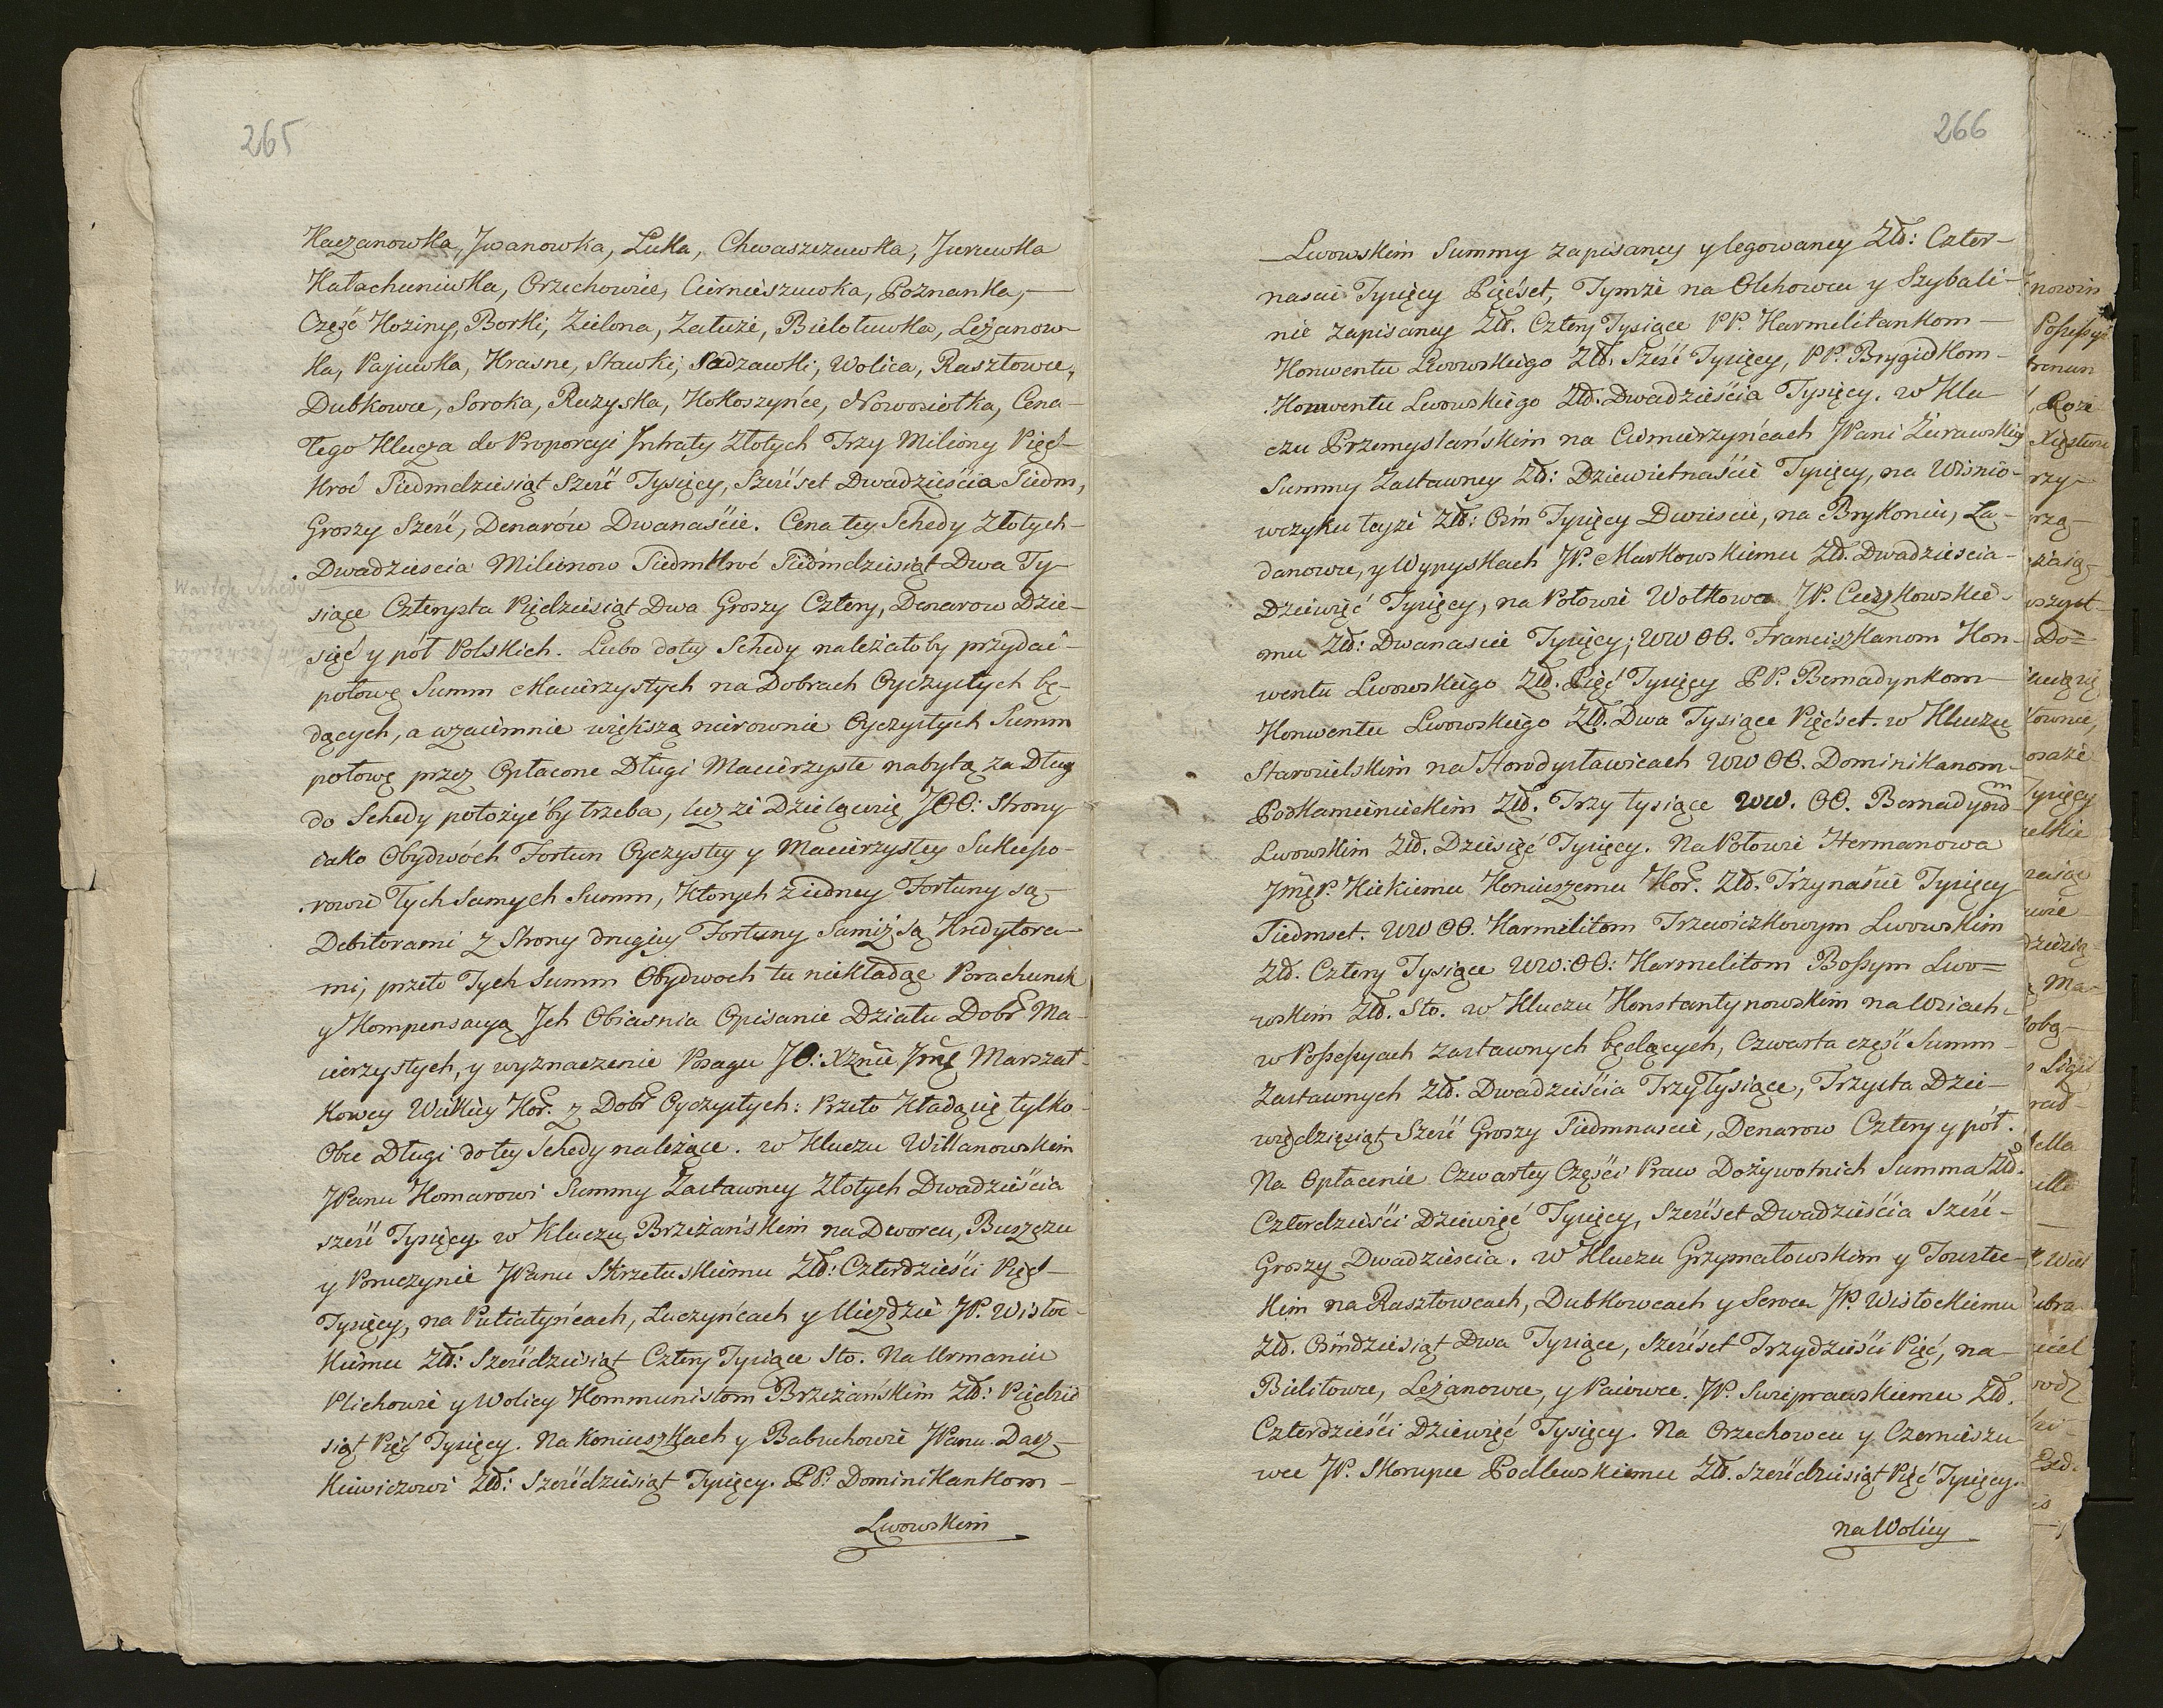 265
Kaczanowka, Jwanowka, Łuka, Chwaszczuwka, Jurzuwka
Kałachuniuwka, Orzechowie, Cierniszuwka, Poznanka,
Częsć Koziny, Borki, Zielona, Załuże, Biełotuwka, Leżanow-
ka, Pajuwka, Krasne, Stawki, Sadzawki, Wolica, Rasztowce,
Dubkowce, Soroka, Ruzyska, Kokoszyńce, Nowosiołka, Cena
tego Klucza do Proporcyi Jntraty Złotych Trzy Miliony Pięć-
kroć Siedmdziesiąt Sześć Tysięcy, Sześćset Dwadzieścia Siedm,
Groszy Sześć, Denarów Dwanaście. Cena tey Schedy Złotych
Dwadziescia Milionow Siedmkroć Siedmdziesiąt Dwa Ty-
siące Czterysta Pięddziesiąt Dwa Groszy Cztery, Denarow Dzie-
sięć y pół Polskich. Lubo do tey Schedy należałoby przydać
połowę Summ Macierzystych na Dobrach Oyczystych bę-
dących, a wzaiemnie większą nierownie Oyczystych Summ
połowę przez Opłacone Długi Macierzyste nabytą za Dług
do Schedy położyćby trzeba, lecz że Dzielącesię JOO: Strony
iako Obydwóch Fortun Oyczystey y Macierzystey Sukcesso-
rowie Tych samych Summ, Ktorych z iedney Fortuny są
Debitorami z Strony drugiey Fortuny Samiż są Kredytora-
mi, przeto Tych Summ Obydwoch tu niekładąc Porachunek
y Kompensacyą Jch Obiasnia Opisanie Działu Dobr Ma-
cierzystych, y wyznaczenie Posagu JO: Xżnie Jmę Marszał-
kowey Wielkiey Kor. z Dobr Oyczystych: Przeto Kładąsię tylko
Obce Długi do tey Schedy należące. w Kluczu Willanowskim
JPanu Komarowi Summy Zastawney Złotych Dwadzieścia
sześć Tysięcy. w Kluczu Brzeżańskim na Dworcu, Buszczu
y Poruczynie JPanu Skrzetuskiemu Zł: Czterdzieści Pięć
Tysięcy, na Putiatyńcach, Łuczyńcach y Uiezdzie JP. Wisłoc-
kiemu Zł: Sześćdziesiąt Cztery Tysiące Sto. Na Urmaniu
Plichowie y Wolicy Kommunistom Brzeżańskim Zł: Pięddzie
siąt Pięć Tysięcy. Na Koniuszkach y Babuchowie JPanu Dasz-
kiewiczowi Zł: Sześćdziesiąt Tysięcy. PP. Dominikankom
Lwowskim
266
Lwowskim Summy zapisaney y legowaney Zł: Czter-
nascie Tysięcy Pięćset, Tymże na Olchowcu y Szybali-
nie zapisaney Zł. Cztery Tysiące PP. Karmelitankom
Konwentu Lwowskiego Zł. Sześć Tysięcy, PP. Brygidkom
Konwentu Lwowskiego Zł. Dwadzieścia Tysięcy. w Klu
czu Przemyslańskim na Ciemierzyńcach JPani Żurawskiey
Summy Zastawney Zł: Dziewietnaście Tysięcy, na Wiśnio-
wczyku teyże Zł: Ośm Tysięcy Dwiescie, na Brykoniu, La-
danowce, y Wypyskach JP. Markowskiemu Zł. Dwadziescia
Dziewięć Tysięcy, na Połowie Wołkowa JP. Cieszkowskie-
mu Zł: Dwanascie Tysięcy; WW OO. Franciszkanom Kon-
wentu Lwowskiego Zł. Pięć Tysięcy PP. Bernadynkom
Konwentu Lwowskiego Zł. Dwa Tysiące Pięćset. w Kluczu
Starosielskim na Horodysławicach WW OO. Dominikanom
Podkamienieckim Zł. Trzy tysiące WW. OO. Bernadynom
Lwowskim Zł. Dziesięć Tysięcy. Na Połowie Hermanowa
Jmę P. Kickiemu Koniuszemu Kor. Zł. Trzynaście Tysięcy
Siedmset. WW OO. Karmelitom Trzewiczkowym Lwowskim
Zł. Cztery Tysiące WW: OO: Karmelitom Bossym Lwo=
wskim Zł. Sto. w Kluczu Konstantynowskim na Wsiach
w Possessyach zastawnych będących, Czwarta częsć Summ
Zastawnych Zł. Dwadzieścia Trzy Tysiące, Trzysta Dzie-
więdzięsiąt Sześć Groszy Siedmnascie, Denarow Cztery y pół.
Na Opłacenie Czwartey Częsci Praw Dożywotnich Summa Zł.
Czterdzieści Dziewięć Tysięcy, Sześćset Dwadzieścia Sześć
Groszy Dwadziescia. w Kluczu Grzymałowskim y Tourtec-
kim na Rasztowcach, Dubkowcach y Soroce JP. Wisłockiemu
Zł. Ośmdziesiąt Dwa Tysiące, Sześćset Trzydzieści Pięć, na
Bielitowce, Leżanowce, y Paiowce. JP. Swieprawskiemu Zł.
Czterdzieści Dziewięć Tysięcy. Na Orzechowcu y Czerniszu
wce JP. Skorupce Podlewskiemu Zł. Sześćdziesiąt Pięć Tysięcy.
na Wolicy